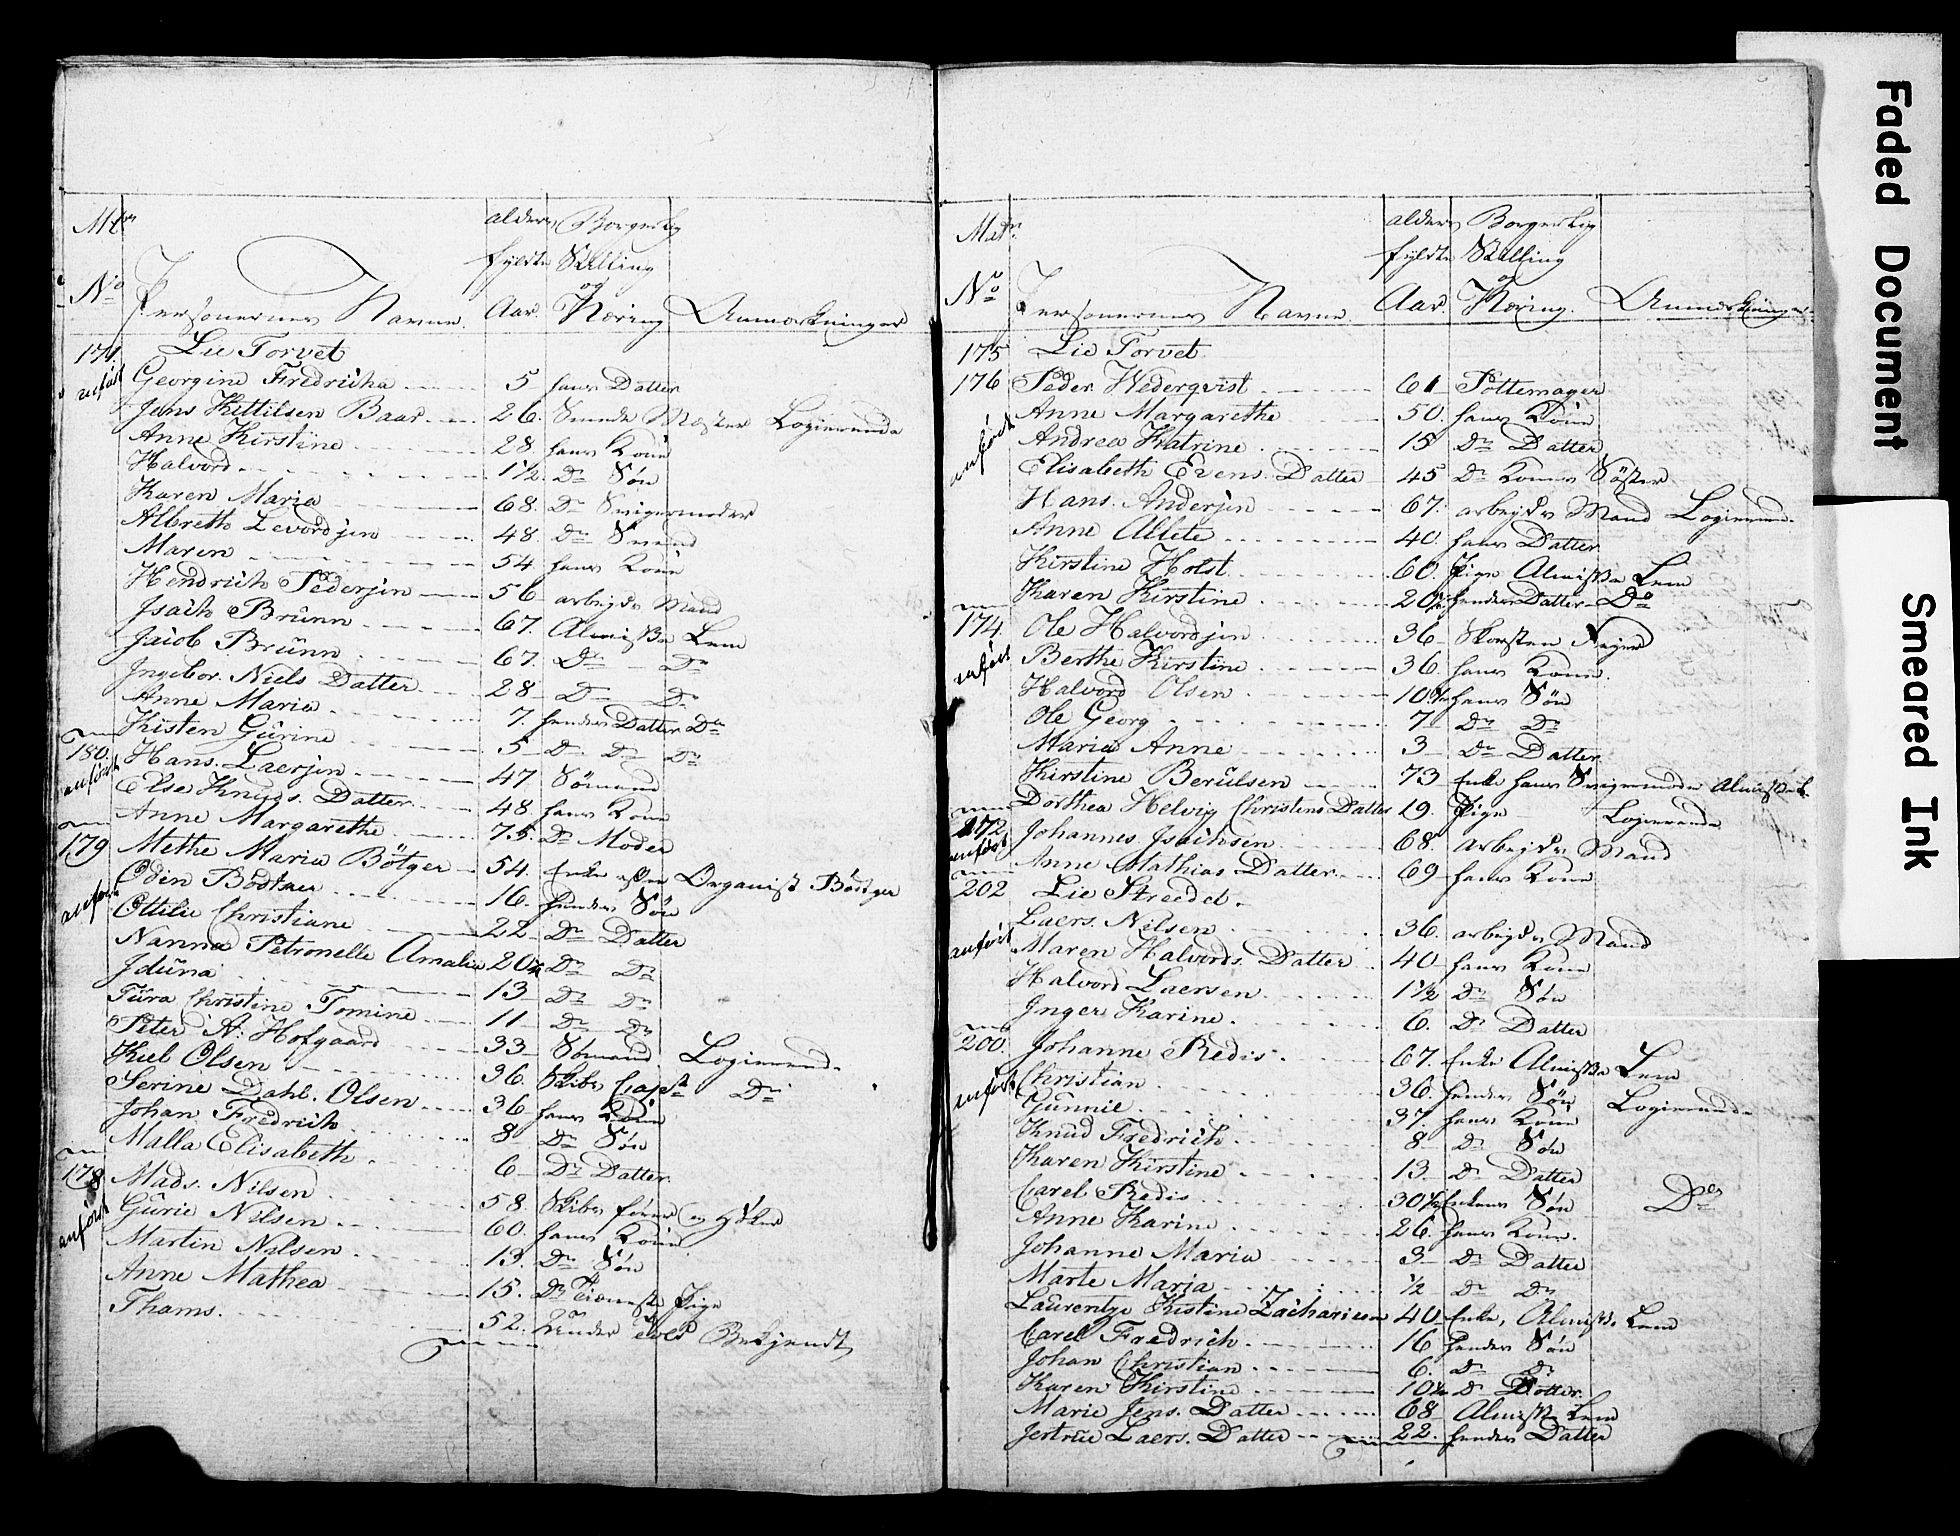 Mtr
alder Borgerlig
fyldte Stilling
og
No Personernes Navne Aar. Næring Anmærkninger
171. Lie Torvet
anført Georgine Fredricha 5 hans Datter
Jens Kittilsen Baar 26. Smede Mæster Logierende
Anne Kirstine 28 hans Kone
Halvord 1½ Do Søn
Karen Maria 68. Do Svigermoder
Albreth Levordsen 48 Do Svend
Maren 54 hans Kone
Hendrich Pedersen 56 arbeyds Mand
Isach Brünn 67. Almisse Lem
Jacob Brünn 67. Do Do
Ingebor Niels Datter 28 Do Do
Anne Maria 7. hendes Datter Do
Kisten Gurine 5 Do Do Do
180. Hans Laersen 47 Sømand
anført Else Knuds. Datter 48 hans Kone
Anne Margarethe 75. Do Moder
179 Methe Maria Bötger 54. Enke efter Organist Bödtger
anført Odin Bödtger 16. hendes Søn
Ottilie Christiane 22 Do Datter
Nanna Petronelle Amalia 20½ Do Do
Iduna 13 Do Do
Türa Christine Tomine 11 Do Do
Peter A. Hofgaard 33 Sømand Logierend.
Kiel Olsen 36. Skibs Capt Do
Serine Dahl. Olsen 36 hans Kone
Johan Fredrich 8 Do Søn
Malla Elisabeth 6 Do Datter
178 Mads. Nilsen 58. Skibs fører og Høker
anført Gurie Nilsen 60. hans Kone
Martin Nilsen 13. Do Søn
Anne Mathea 15. Do Tieneste Pige
Thams. 52. Bekjendt
Matr.
alder Borgerlig
fyldte Stilling
og
No Personernes Navne Aar. Næring. Anmærkninger
175 Lie Torvet
176 Peder Wederqvist 61 Pottemager
anført Anne Margarethe 50 hans Kone
Andrea Katrine 15 Do Datter
Elisabeth Evens. Datter 45 Do Kones Søster
Hans. Andersen 67. arbeyds Mand Logierend.
Anne Allete 40. hans Datter
Kirstine Holst 60. Pige Almisse Lem
Karen Kirstine 20½ hendes Datter Do
174 Ole Halvordsen 36 Skorsten Feyer
anført Berthe Kirstine 36. hans Kone.
Halvord Olsen 10½ hans Søn
Ole Georg 7 Do Do
Maria Anne 3 Do Datter
Kirstine Berulsen 73 Enke hans Svigermoder Almisse L.
Dorthea Helvig Christens Datter 19. Pige Logierende
172 Johannes Isachsen 68. Arbeyds Mand
anført Anne Mathias Datter 69 hans Kone
202 Lie Strædet.
Laers. Nilsen 36. arbeyds Mand
anført Maren Halvords. Datter 40 hans Kone
Halvord Laersen 1½ Do Søn
Inger Karine. 6. Do Datter
200. Johanne Redis. 67. Enke Almisse Lem
anført Christian 36. hendes Søn Logierende
Gunnil 37. hans Kone
Knud Fredrich 8 Do Søn
Karen Kirstine 13. Do Datter
Carel Redis 30½ Enkens Søn Do
Anne Karine 26. hans Kone.
Johanne Maria 3 Do Datter
Marte Maria ½ Do Do
Laurentze Kistine Zachariesen 40 Enke, Almisse Lem
Carel Fredrich 16 hendes Søn
Johan Christian 6. Do Do
Karen Kirstine 10½ Do Datter.
Marie Jens. Datter 68 Almisse Lem
Jertrue Laers. Datter 22. hendes Datter
Faded Document
Smeared Ink